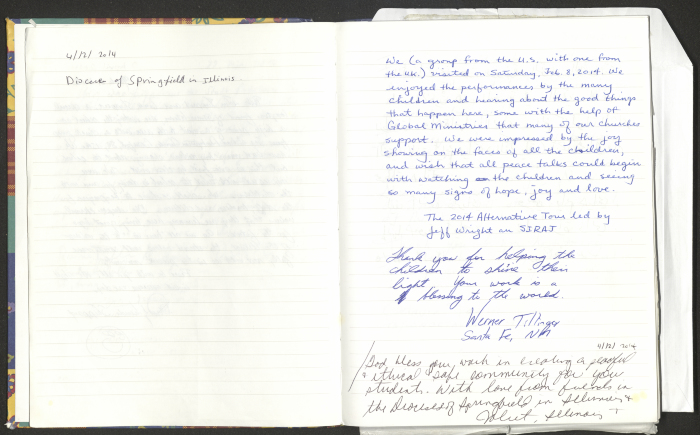 4/12/2014
Diocese of Springfield in Illinois
We (a group from the U.S. with one from
the UK.) visited on Saturday, Feb. 8, 2014. We
enjoyed the performances by the many
children and hearing about the good things
that happen here, some with the help of
Global Ministries that many of our churches
support. We were impressed by the joy
showing on the faces of all the children,
and wish that all peace talks could begin
with watching the children and seeing
so many signs of hope, joy and love.
The 2014 Alternative Tour led by
Jeff Wright on SIRAJ
Thank you for helping the
children to shine their
light. Your work is a
blessing to the world.
Werner Tillinger
Santa Fe, NM
4/12/2014
God bless your work in creating a peaceful
& ethical safe community for your
students. With love from friends in
the Diocese of Springfield in Illinois &
Joliet, Illinois